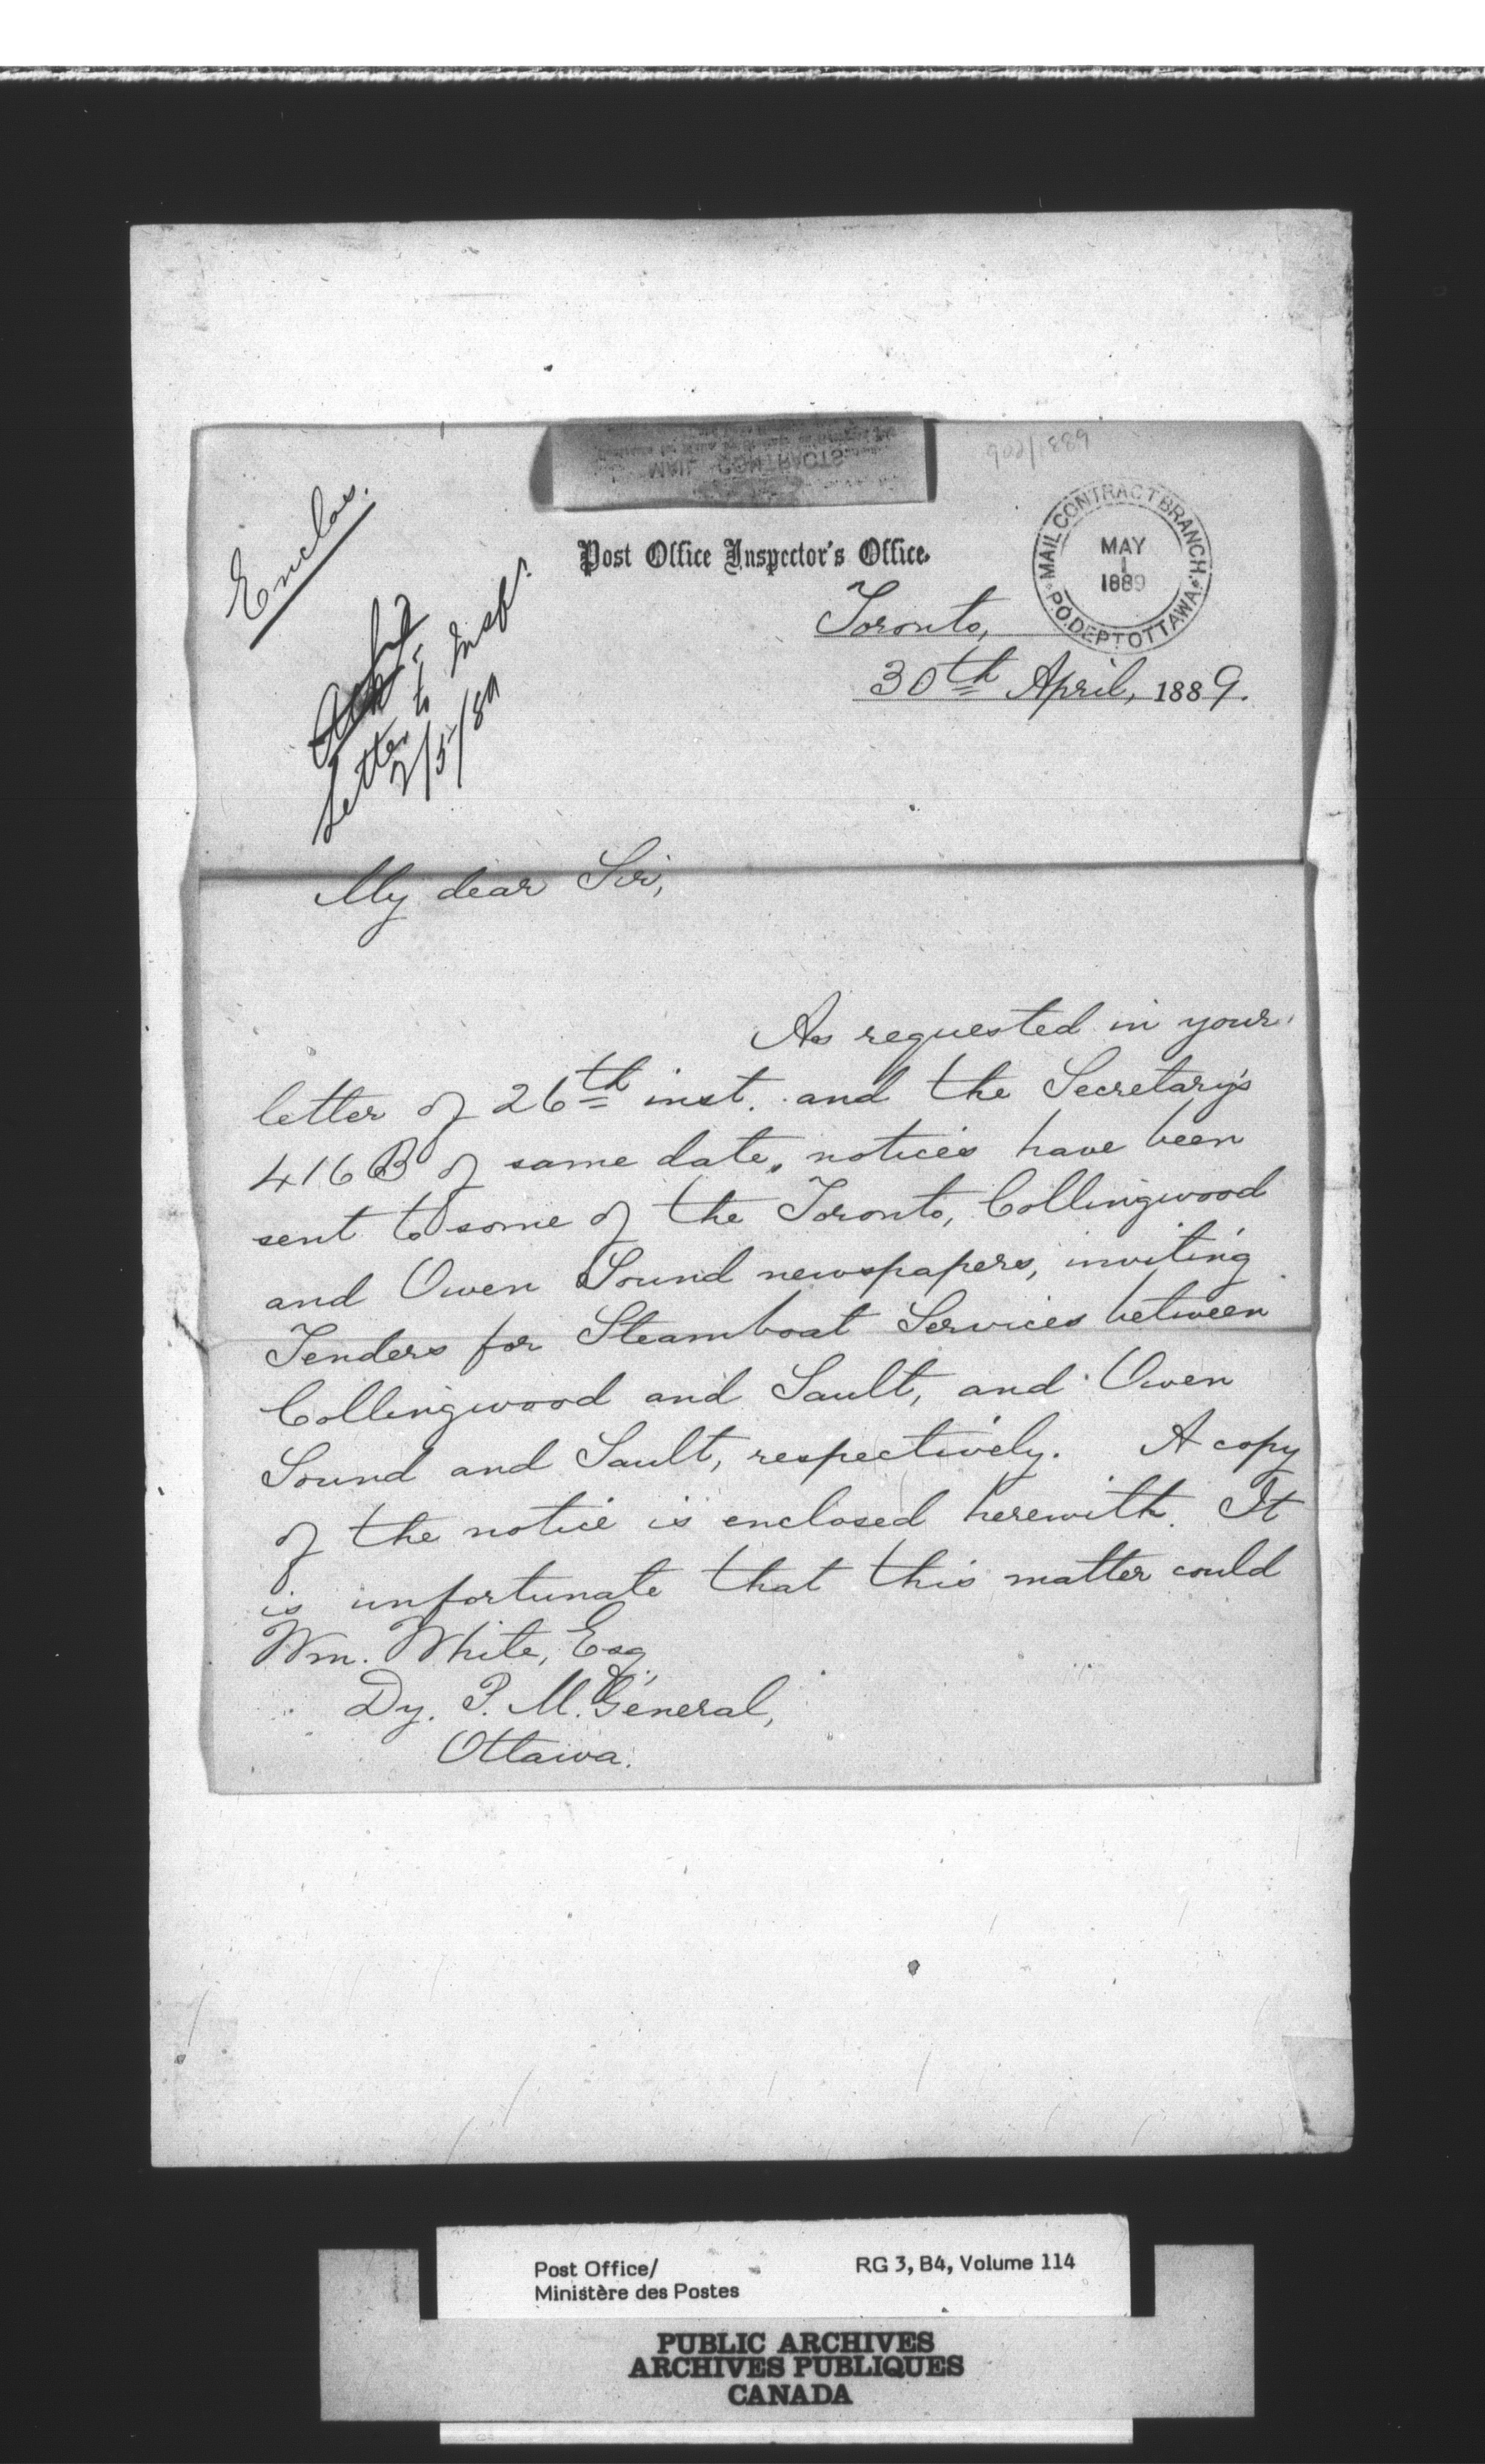 MAIL CONTRACTS
Enclos.
Post Office Inspector's Office.
MAIL CONTRACT BRANCH.
P.O. DEPT OTTAWA.
MAY
1
1889
Toronto,
30th April, 1889.
Letter to Insp.
2/5/89
My dear Sir,
As requested in your
letter of 26th inst. and the Secretary's
416 B of same date, notices have been
sent to some of the Toronto, Collingwood
and Owen Sound newspapers, inviting
Tenders for Steamboat Services between
Collingwood and Sault, and Owen
Sound and Sault, respectively. A copy
of the notice is enclosed herewith. It
is unfortunate that this matter could
Wm. White, Esq.,
Dy. P. M. General,
Ottawa.
Post Office/
Ministère des Postes
RG 3, B4, Volume 114
PUBLIC ARCHIVES
ARCHIVES PUBLIQUES
CANADA